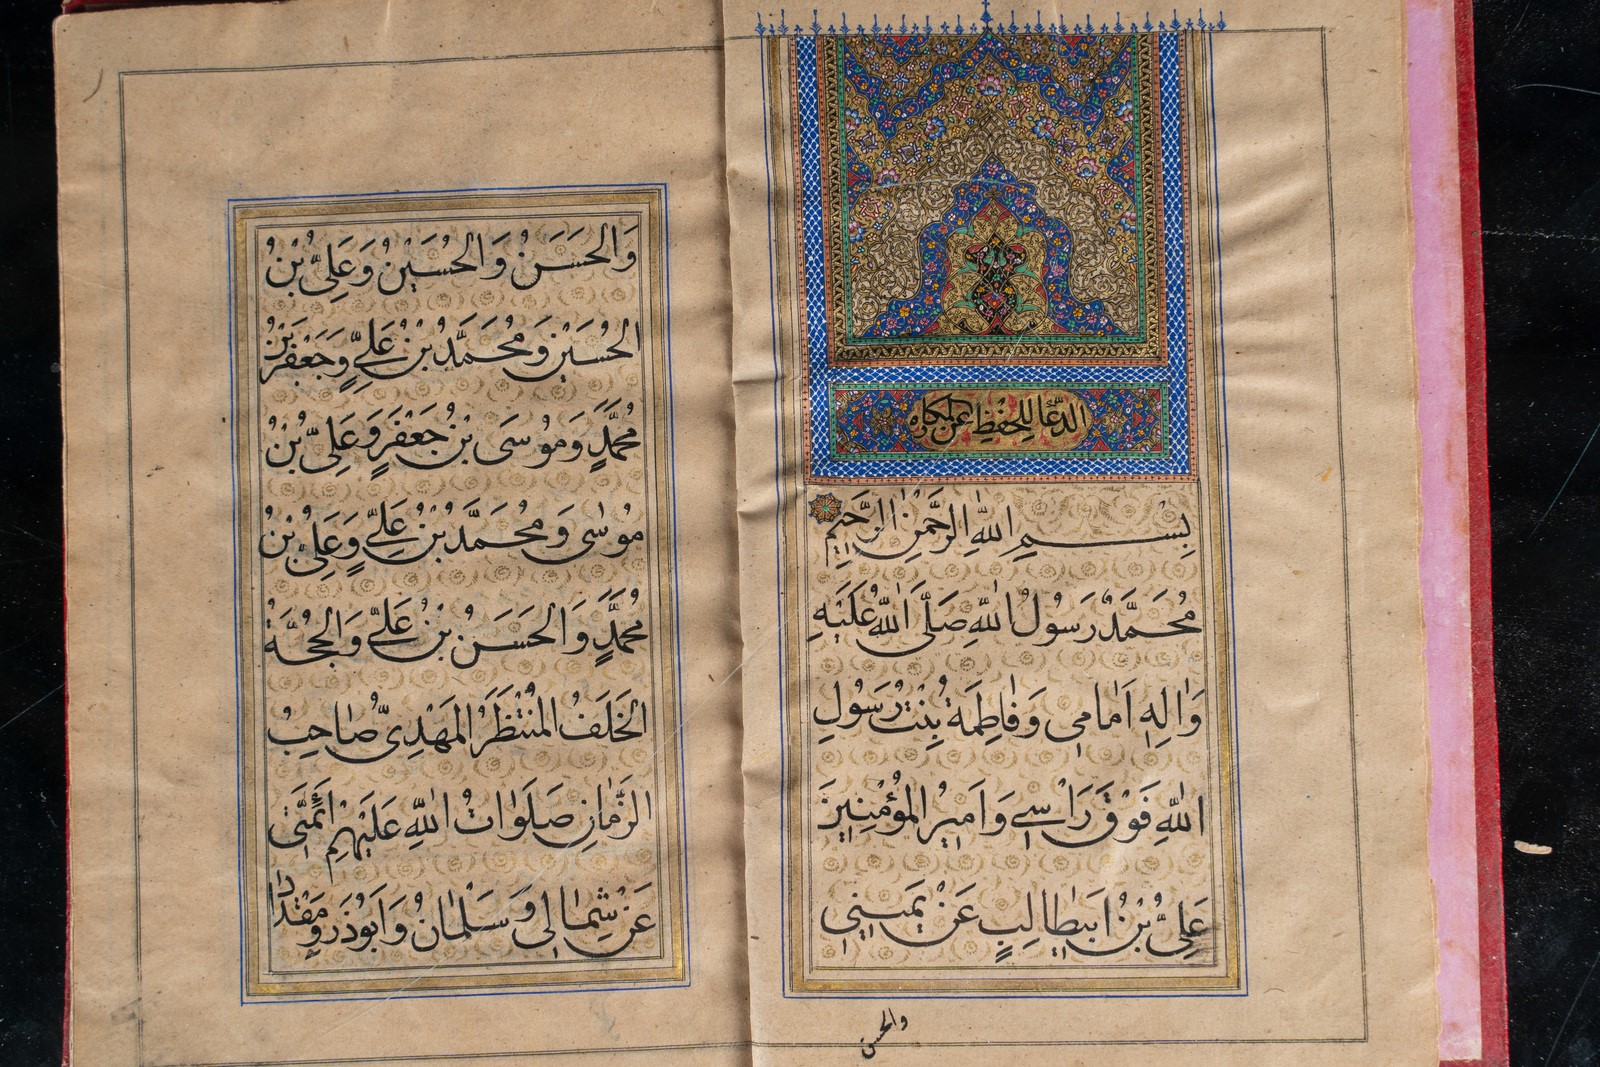 الدّعا للحفظ عن المكاره
بِسْمِ اللهِ الرَّحْمٰنِ الرَّحِيمِ
مُحَمَّدٌ رَسُولُ اللهِ صَلَّى اللهُ عَلَيْهِ
وَاٰلِهِ اَمَامِى وَفَاطِمَةُ بِنْتُ رَسُولِ
اللهِ فَوْقَ رَاْسِى وَاَمِيرُ الْمُؤْمِنِينَ
عَلِىُّ بْنُ اَبِيطَالِبٍ عَنْ يَمِينِى
والحسن
وَالْحَسَنُ وَالْحُسَيْنُ وَعَلِىُّ بْنُ
الْحُسَيْنِ وَمُحَمَّدُ بْنُ عَلِىٍّ وَجَعْفَرُ بْنُ
مُحَمَّدٍ وَمُوسَى بْنُ جَعْفَرٍ وَعَلِىُّ بْنُ
مُوسٰى وَمُحَمَّدُ بْنُ عَلِىٍّ وَعَلِىُّ بْنُ
مُحَمَّدٍ وَالْحَسَنُ بْنُ عَلِىٍّ وَالْحُجَّةُ
الْخَلَفُ الْمُنْتَظَرُ الْمَهْدِىُّ صَاحِبُ
الزَّمَانِ صَلَوَاتُ اللهِ عَلَيْهِمْ اَئِمَّتِى
عَنْ شِمَالِى وَسَلْمَانُ وَاَبُوذَرَ وَمِقْدَادُ